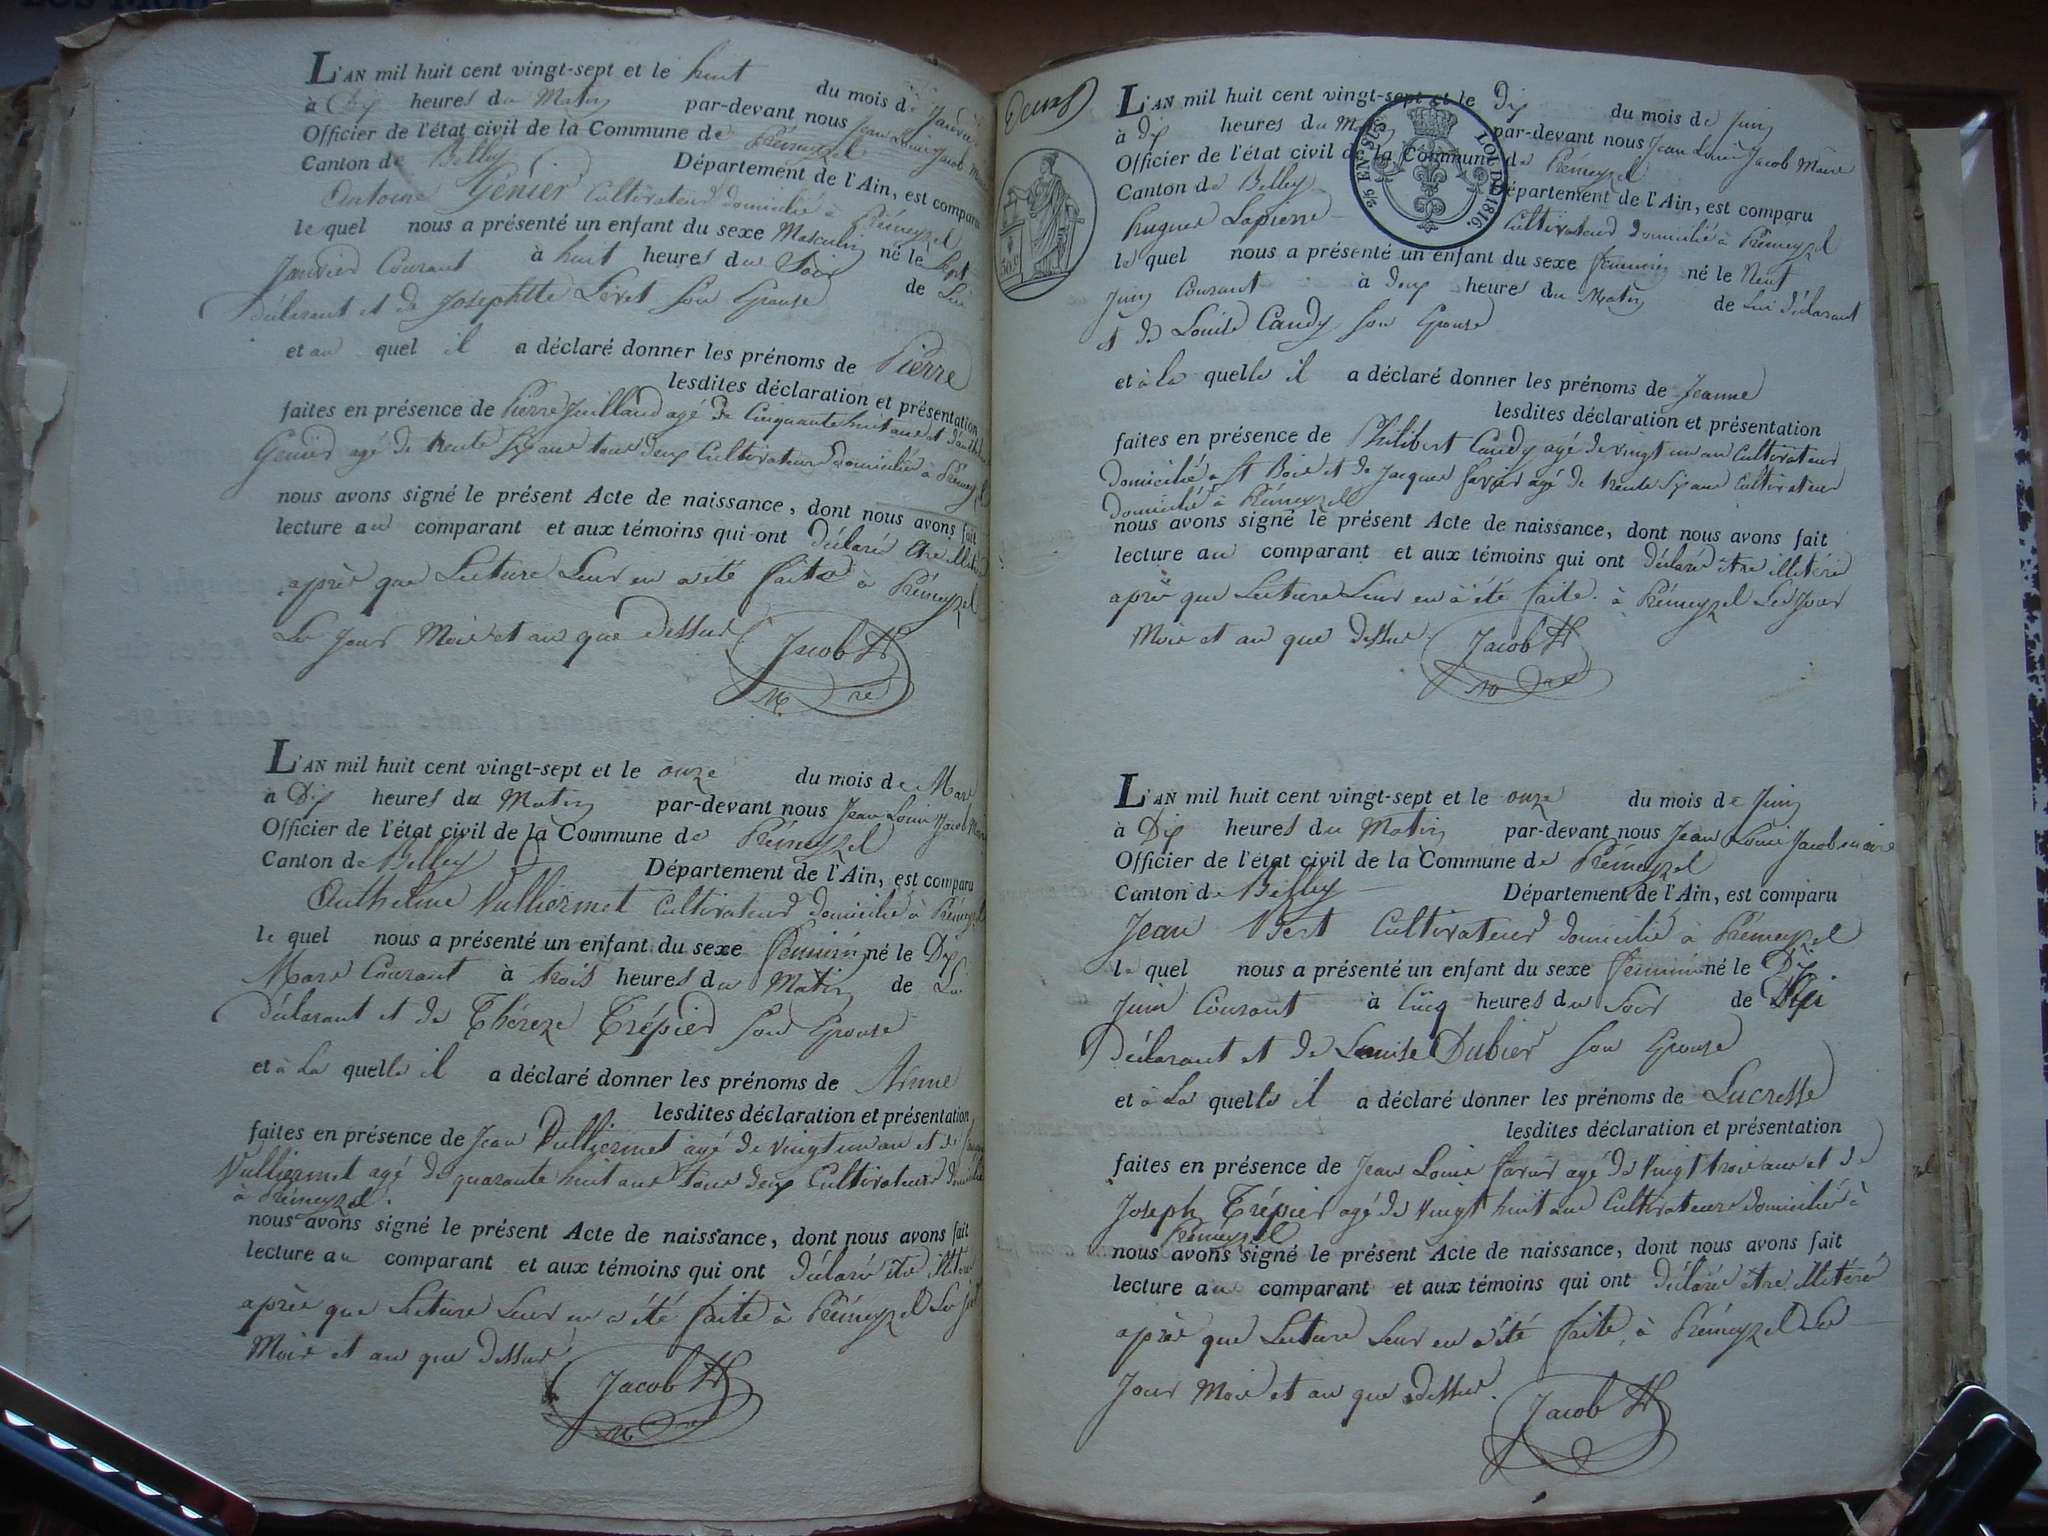 L'AN mil huit cent vingt-sept et le huit du mois de Janvier
à Dix heures du Matin par-devant nous Jean Louis Jacob Maire
Officier de l'état civil de la Commune de Prémeyzel
Canton de Belley Département de l'Ain, est comparu
Antoine Génier Cultivateur domicilié à Prémeyzel
le quel nous a présenté un enfant du sexe Masculin né le Sept
Janvier Courant à huit heures du Soir de Lui
déclarant et de Josephtte Son Epouse
et au quel il a déclaré donner les prénoms de Pierre
lesdites déclaration et présentation
faites en présence de Pierre Juilland agé de Cinquante huit ans et d'
Genier agé de trente Six ans tous deux Cultivateurs domiciliés à Prémeyzel
nous avons signé le présent Acte de naissance, dont nous avons fait
lecture au comparant et aux témoins qui ont déclaré être
après que Lecture Leur en a été faite à Prémeyzel
Le Jour Mois et an que dessus Jacob
M re
L'AN mil huit cent vingt-sept et le onze du mois de Mars
à Dix heures du Matin par-devant nous Jean Louis Jacob Maire
Officier de l'état civil de la Commune de Prémeyzel
Canton de Belley Département de l'Ain, est comparu
Anthelme Vulliermet Cultivateur domicilié à Prémeyzel
le quel nous a présenté un enfant du sexe féminin né le Dix
Mars Courant à trois heures du Matin de Lui
déclarant et de Théreze Trépier Son Epouse
et à La quelle il a déclaré donner les prénoms de Anne
lesdites déclaration et présentation
faites en présence de Jean Vulliermet agé de vingt un an et de
Vulliermet agé de quarante huit ans Tous deux Cultivateurs
à Prémeyzel.
nous avons signé le présent Acte de naissance, dont nous avons fait
lecture au comparant et aux témoins qui ont déclaré être
après que Lecture Leur en a été faite à Prémeyzel Le
Mois et an que dessus
Jacob
Deux
L'AN mil huit cent vingt-sept et le Dix du mois de Juin
à dix heures du Matin par-devant nous Jean Louis Jacob Maire
Officier de l'état civil de la Commune de Prémeyzel
Canton de Belley Département de l'Ain, est comparu
Hugues Lapierre Cultivateur domicilié à Prémeyzel
le quel nous a présenté un enfant du sexe féminin né le Neuf
Juin Courant à deux heures du Matin de Lui déclarant
et de Louise Candy Son Epouse
et à La quelle il a déclaré donner les prénoms de Jeanne
lesdites déclaration et présentation
faites en présence de Philibert Candy agé de vingt un an Cultivateur
domicilié à St Bois et de Jacques favier agé de trente Six ans Cultivateur
domicilié à Prémeyzel
nous avons signé le présent Acte de naissance, dont nous avons fait
lecture au comparant et aux témoins qui ont déclaré être illitéré
après que Lecture Leur en a été faite. à Prémeyzel Les Jour
Mois et an que dessus. Jacob
L'AN mil huit cent vingt-sept et le onze du mois de Juin
à Dix heures du Matin par-devant nous Jean Louis Jacob maire
Officier de l'état civil de la Commune de Prémeyzel
Canton de Belley Département de l'Ain, est comparu
Jean Bert Cultivateur domicilié à Prémeyzel
le quel nous a présenté un enfant du sexe féminin né le Dix
Juin Courant à Cinq heures du Soir de
déclarant et de Louise Dubier Son Epouse
et à La quelle il a déclaré donner les prénoms de Lucresse
lesdites déclaration et présentation
faites en présence de Jean Louis favier agé de Vingt trois ans et de
Joseph Trépier agé de vingt huit ans Cultivateurs domiciliés à
Prémeyzel
nous avons signé le présent Acte de naissance, dont nous avons fait
lecture au comparant et aux témoins qui ont déclaré être illitéré
après que Lecture Leur en a été faite, à Prémeyzel Le
Jour Mois et an que dessus.
Jacob